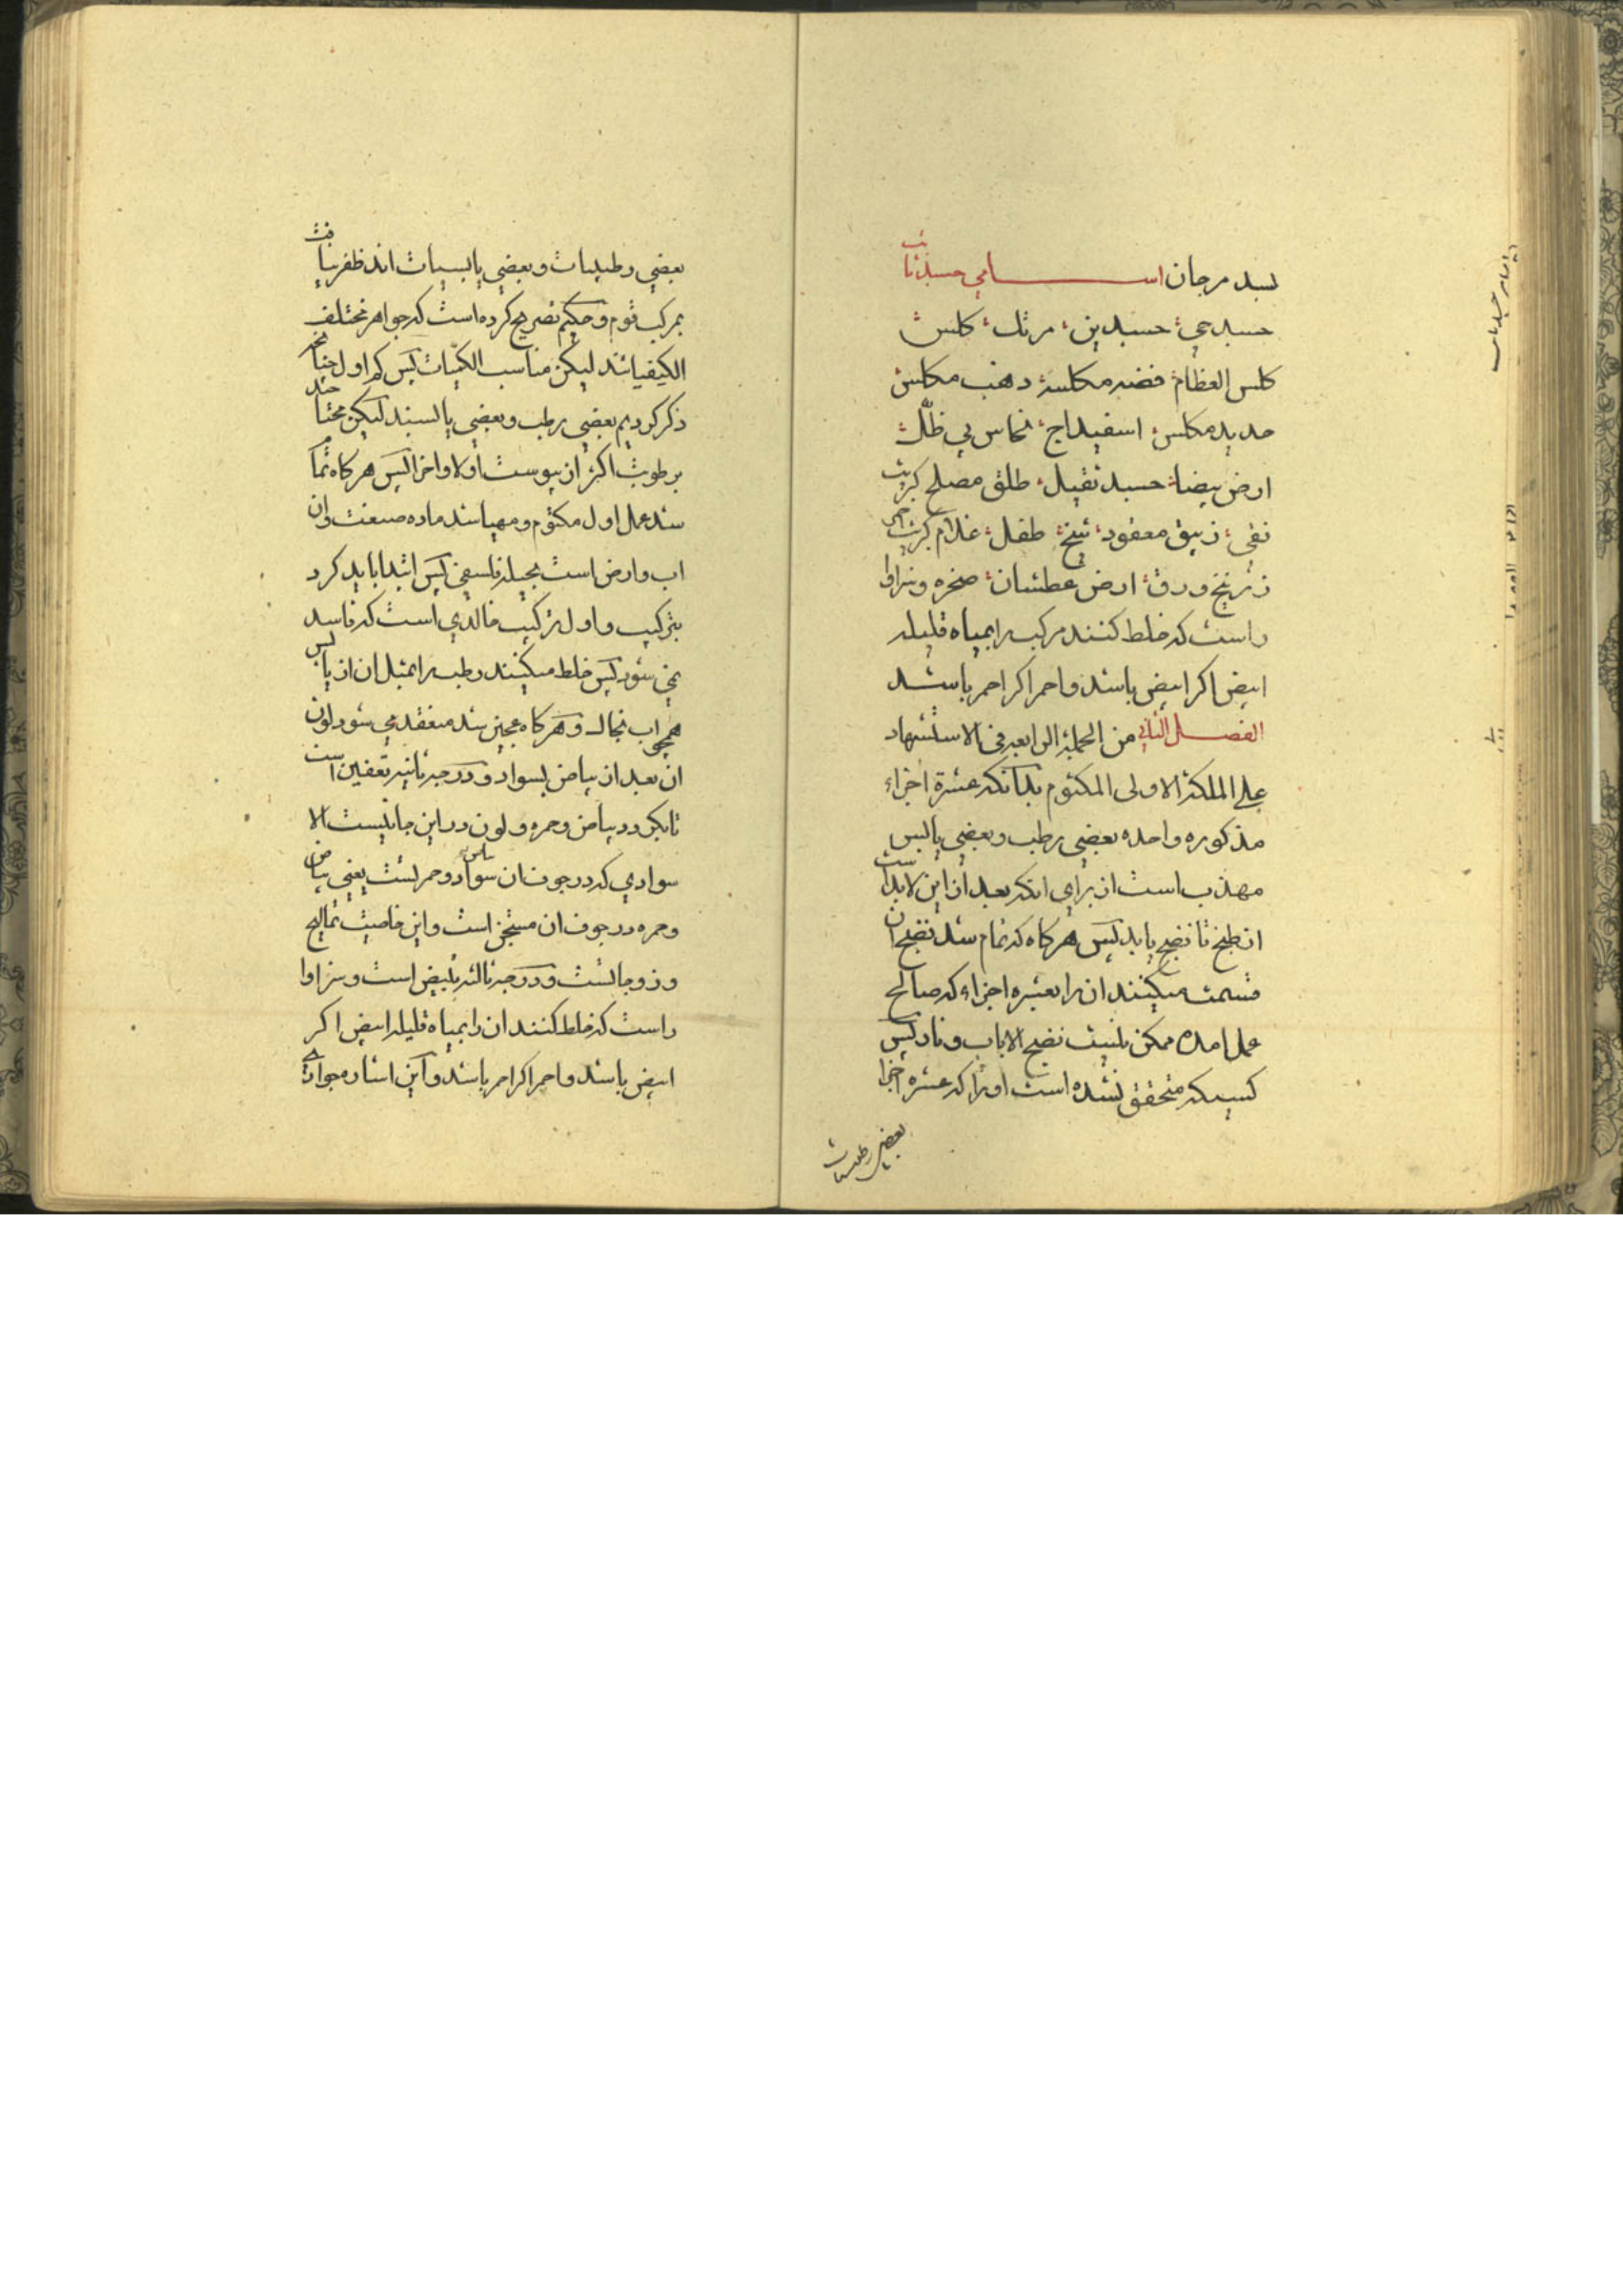 بسد مرجان اسامي جسدنيات
جسد حي جسد ين مرتك كلس
كلس العظام فضه مكلسه ذهب مكلس
حديد مكلس اسفيداج نحاس بي ظل
ارض بيضا جسد ثقيل طلق مصلح كبريت
نقي زيبق معقود شيخ طفل غلام كبريت احمر
زرنيخ ورق ارض عطشان صخره وسزاوا
راست كه خلط كنند مركب را بمياه قليله
ابيض اكر ابيض باشد واحمر اكر احمر باشد
الفصل الثاني من الجملة الرابعه في الاستشهاد
علي الملكة الاولى المكتوم بدانكه عشرة اجزاء
مذكوره واحده بعضي رطب وبعضي يابس
مهذب است از براي انكه بعد از اين لابد است
از طبخ تا نضج يابد پس هركاه كه تمام شد نضج ان
قسمت ميكنند ان را بعشره اجزاء كه صالح
عمل امده ممكن نيست نضج الا باب ونار پس
كسيكه متحقق نشده است او را كه عشره اجزا
بعضي رطبيات
بعضي رطبيات وبعضي يابسيات اند ظفر نيافت
بمركب قوم وحكيم تصريح كرده است كه جواهر مختلف
الكيفياتند ليكن مناسب الكميات پس كم اول چنانچه
ذكر كرديم بعضي رطب وبعضي يابسند ليكن محتاجند
برطوبت اكثر از يبوست اولا واخرا پس هركاه تمام
شد عمل اول مكتوم ومهيا شد ماده صنعت وان
اب وارض است بحيله فلسفي پس ابتدا بايد كرد
بتركيب واول تركيب خالدي است كه فاسد
نمي شود پس خلط ميكنند رطب را بمثل ان از يابس
همچو اب بخاك وهركاه عجين شد منعقد مي شود لون
ان بعد از بياض بسواد ودرجه ثانيه تعفين است
تا بكردد بياض وحمره ولون در اين جا نيست الا
سوادي كه در جوف ان سواد وحمرتست يعني بياض
وحمره در جوف ان مستجن است واين خاصيت تماليح
وزوجاتست ودرجه ثالثه تبييض است وسزاوا
راست كه خلط كنند ان را بمياه قليله ابيض اكر
ابيض باشد واحمر اكر احمر باشد واين اشاره جوادي